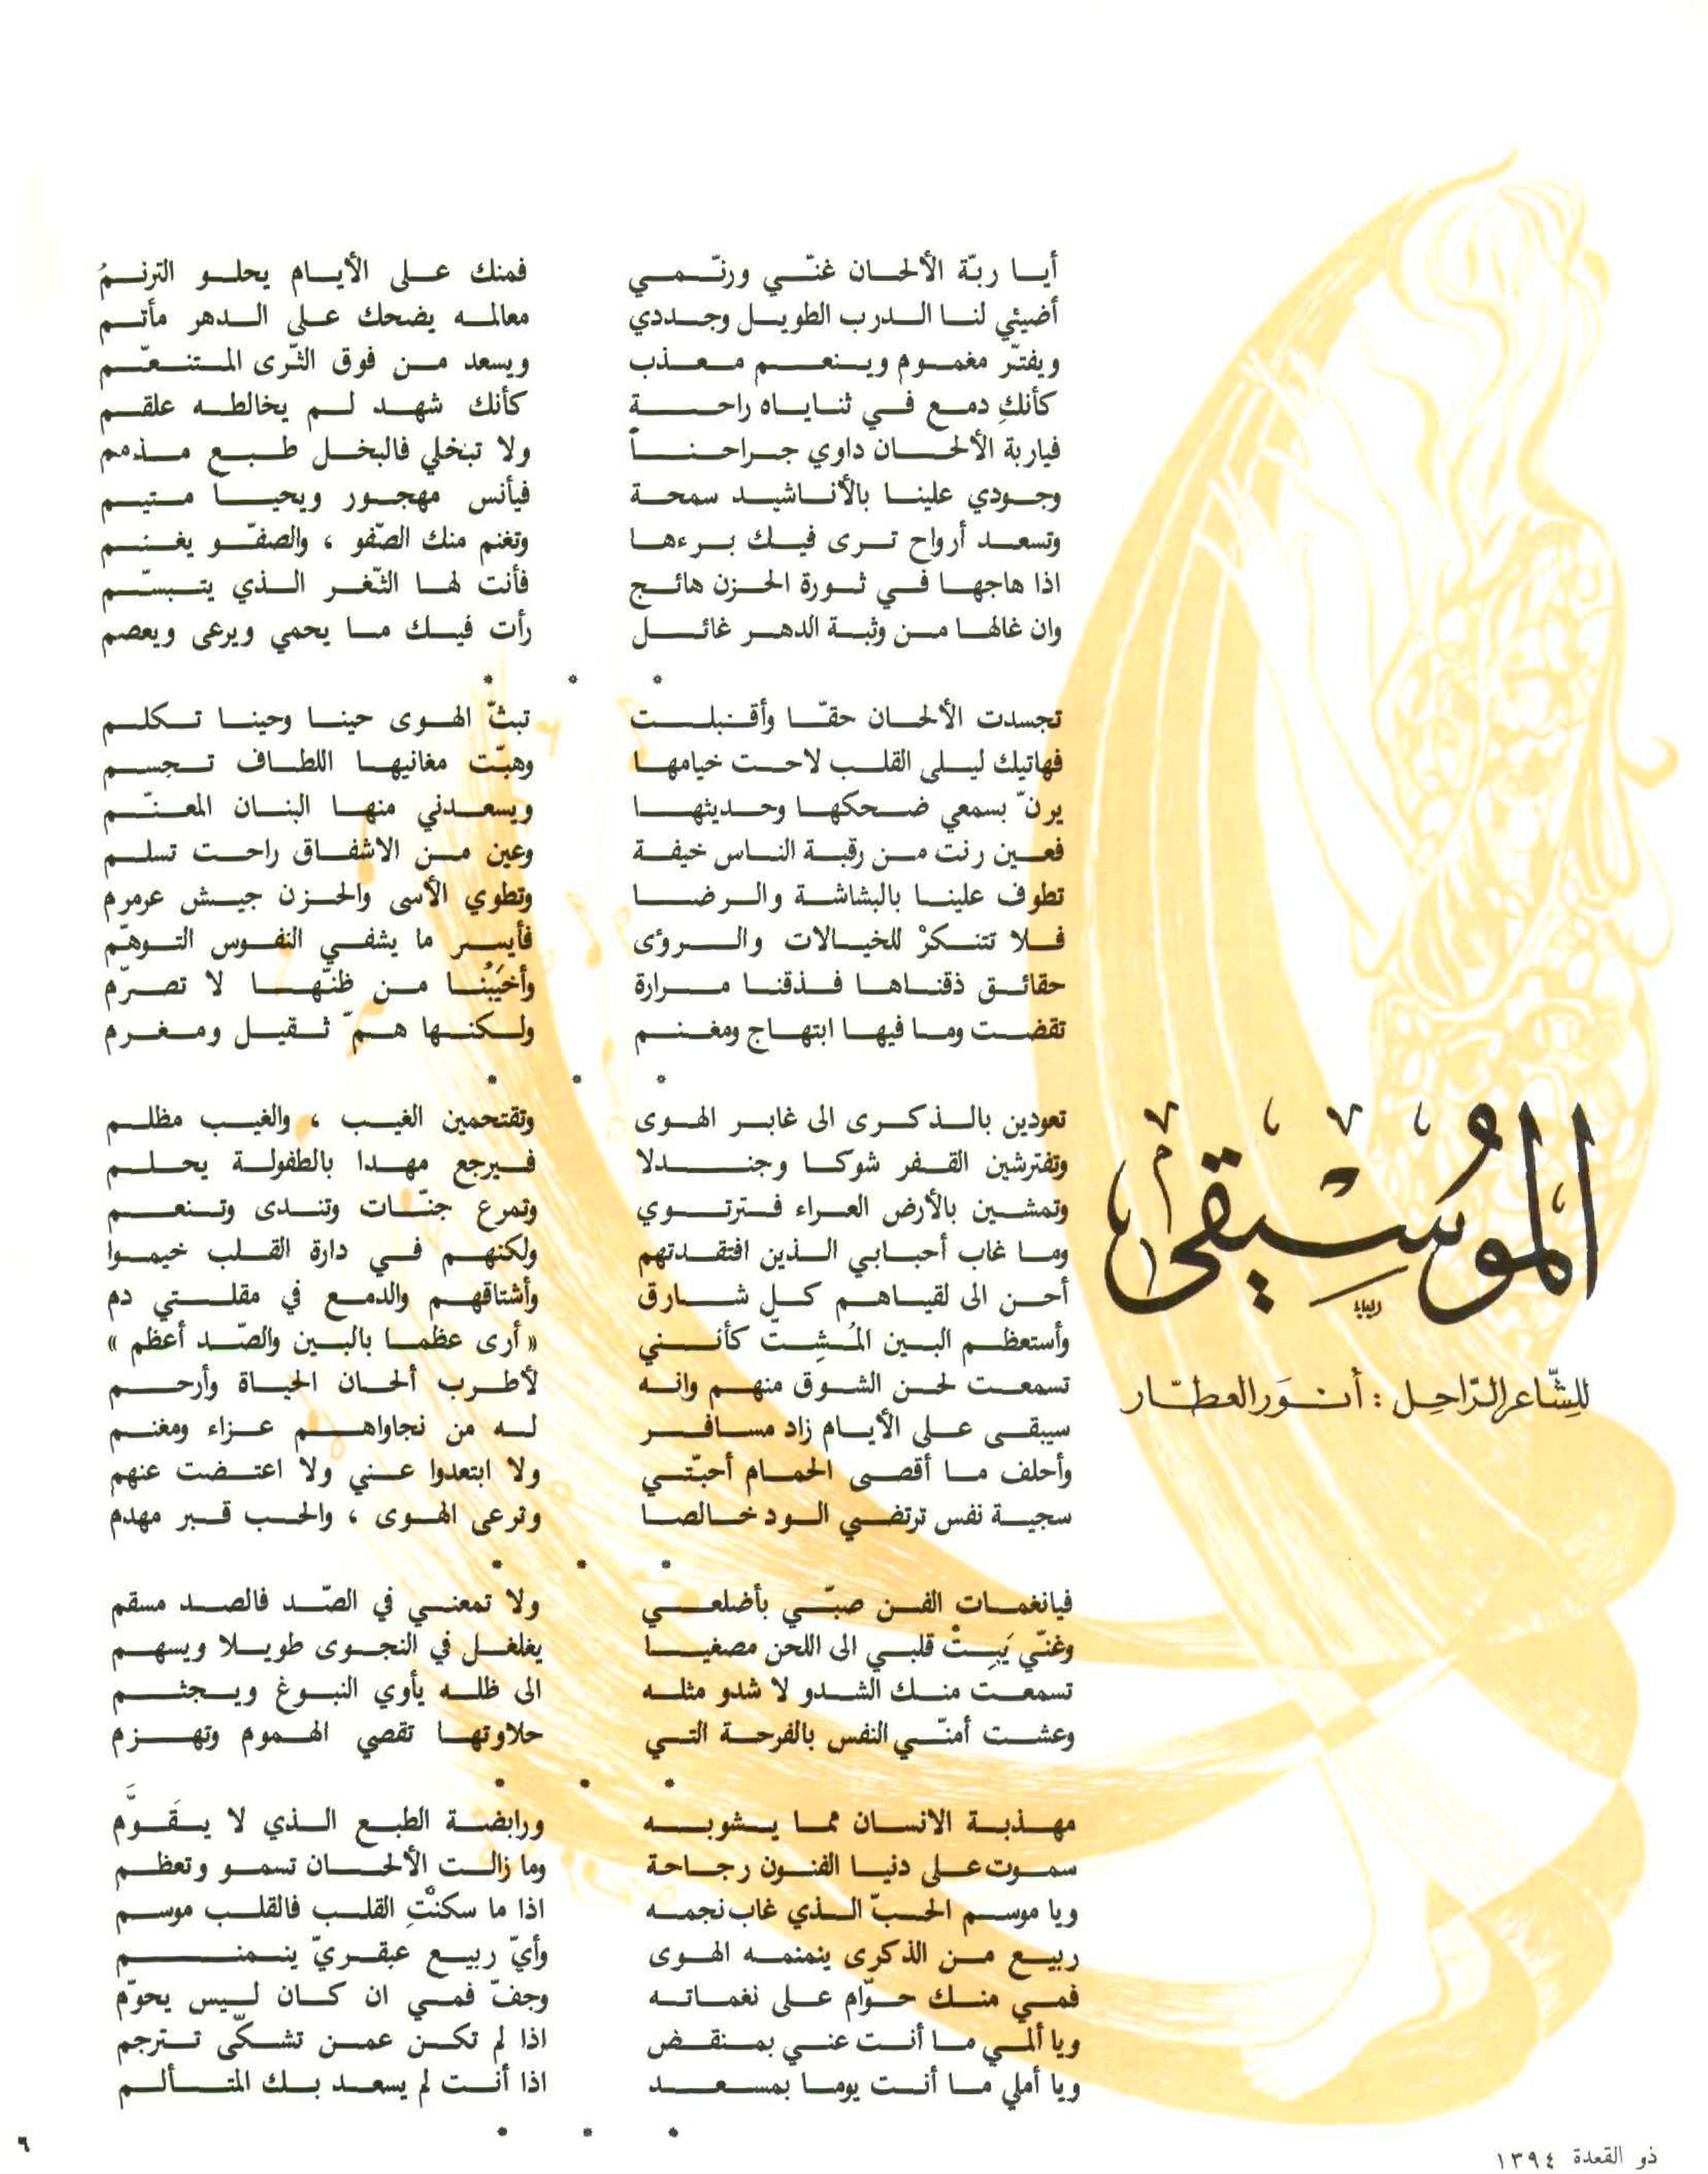 الموسيقى
للشاعر الراحل : أنور العطار
أيا ربّة الألحان غنّي ورنّمي فمنك على الأيام يحلو الترنمُ
أضيئي لنا الدرب الطويل وجددي معالمه يضحك على الدهر مأتم
ويفترّ مغموم وينعم معذب ويسعد من فوق الثّرى المتنعّم
كأنكِ دمع في ثناياه راحة كأنك شهد لم يخالطه علقم
فياربة الألحان داوي جراحناً ولا تبخلي فالبخل طبع مذمم
وجودي علينا بالأناشيد سمحة فيأنس مهجور ويحيا متيم
وتسعد أرواح ترى فيك برءها وتغنم منك الصّفو ، والصفّو يغنم
اذا هاجها في ثورة الحزن هائج فأنت لها الثّغر الذي يتبسّم
وان غالها من وثبة الدهر غائل رأت فيك ما يحمي ويرعى ويعصم
* * *
تجسدت الألحان حقّا وأقبلت تبثّ الهوى حينا وحينا تكلم
فهاتيك ليلى القلب لاحت خيامها وهبّت مغانيها اللطاف تجسم
يرنّ بسمعي ضحكها وحديثها ويسعدني منها البنان المعنّم
فعين رنت من رقبة الناس خيفة وعين من الاشفاق راحت تسلم
تطوف علينا بالبشاشة والرضا وتطوي الأسى والحزن جيش عرمرم
فلا تتنكرْ للخيالات والرؤى فأيسر ما يشفي النفوس التوهّم
حقائق ذقناها فذقنا مرارة وأخيَبُنا من ظنّها لا تصرّم
تقضت وما فيها ابتهاج ومغنم ولكنها همّ ثقيل ومغرم
* * *
تعودين بالذكرى الى غابر الهوى وتقتحمين الغيب ، والغيب مظلم
وتفترشين القفر شوكا وجندلا فيرجع مهدا بالطفولة يحلم
وتمشين بالأرض العراء فترتوي وتمرع جنّات وتندى وتنعم
وما غاب أحبابي الذين افتقدتهم ولكنهم في دارة القلب خيموا
أحن الى لقياهم كل شارق وأشتاقهم والدمع في مقلتي دم
وأستعظم البين المُشِتّ كأنني « أرى عظما بالبين والصّد أعظم »
تسمعت لحن الشوق منهم وانه لأطرب ألحان الحياة وأرحم
سيبقى على الأيام زاد مسافر له من نجاواهم عزاء ومغنم
وأحلف ما أقصى الحمام أحبّتي ولا ابتعدوا عني ولا اعتضت عنهم
سجية نفس ترتضي الود خالصا وترعى الهوى ، والحب قبر مهدم
* * *
فيانغمات الفن صبّي بأضلعي ولا تمعني في الصّد فالصد مسقم
وغنّي يَبِتْ قلبي الى اللحن مصغيا يغلغل في النجوى طويلا ويسهم
تسمعت منك الشدو لا شدو مثله الى ظله يأوي النبوغ ويجثم
وعشت أمنّي النفس بالفرحة التي حلاوتها تقصي الهموم وتهزم
* * *
مهذبة الانسان مما يشوبه ورابضة الطبع الذي لا يقَوَّم
سموت على دنيا الفنون رجاحة وما زالت الألحان تسمو وتعظم
ويا موسم الحبّ الذي غاب نجمه اذا ما سكنْتِ القلب فالقلب موسم
ربيع من الذكرى ينمنمه الهوى وأيّ ربيع عبقريّ ينمنم
فمي منك حوّام على نغماته وجفّ فمي ان كان ليس يحوّم
ويا ألمي ما أنت عني بمنقض اذا لم تكن عمن تشكّى تترجم
ويا أملي ما أنت يوما بمسعد اذا أنت لم يسعد بك المتألم
* * *
ذو القعدة ١٣٩٤
٦